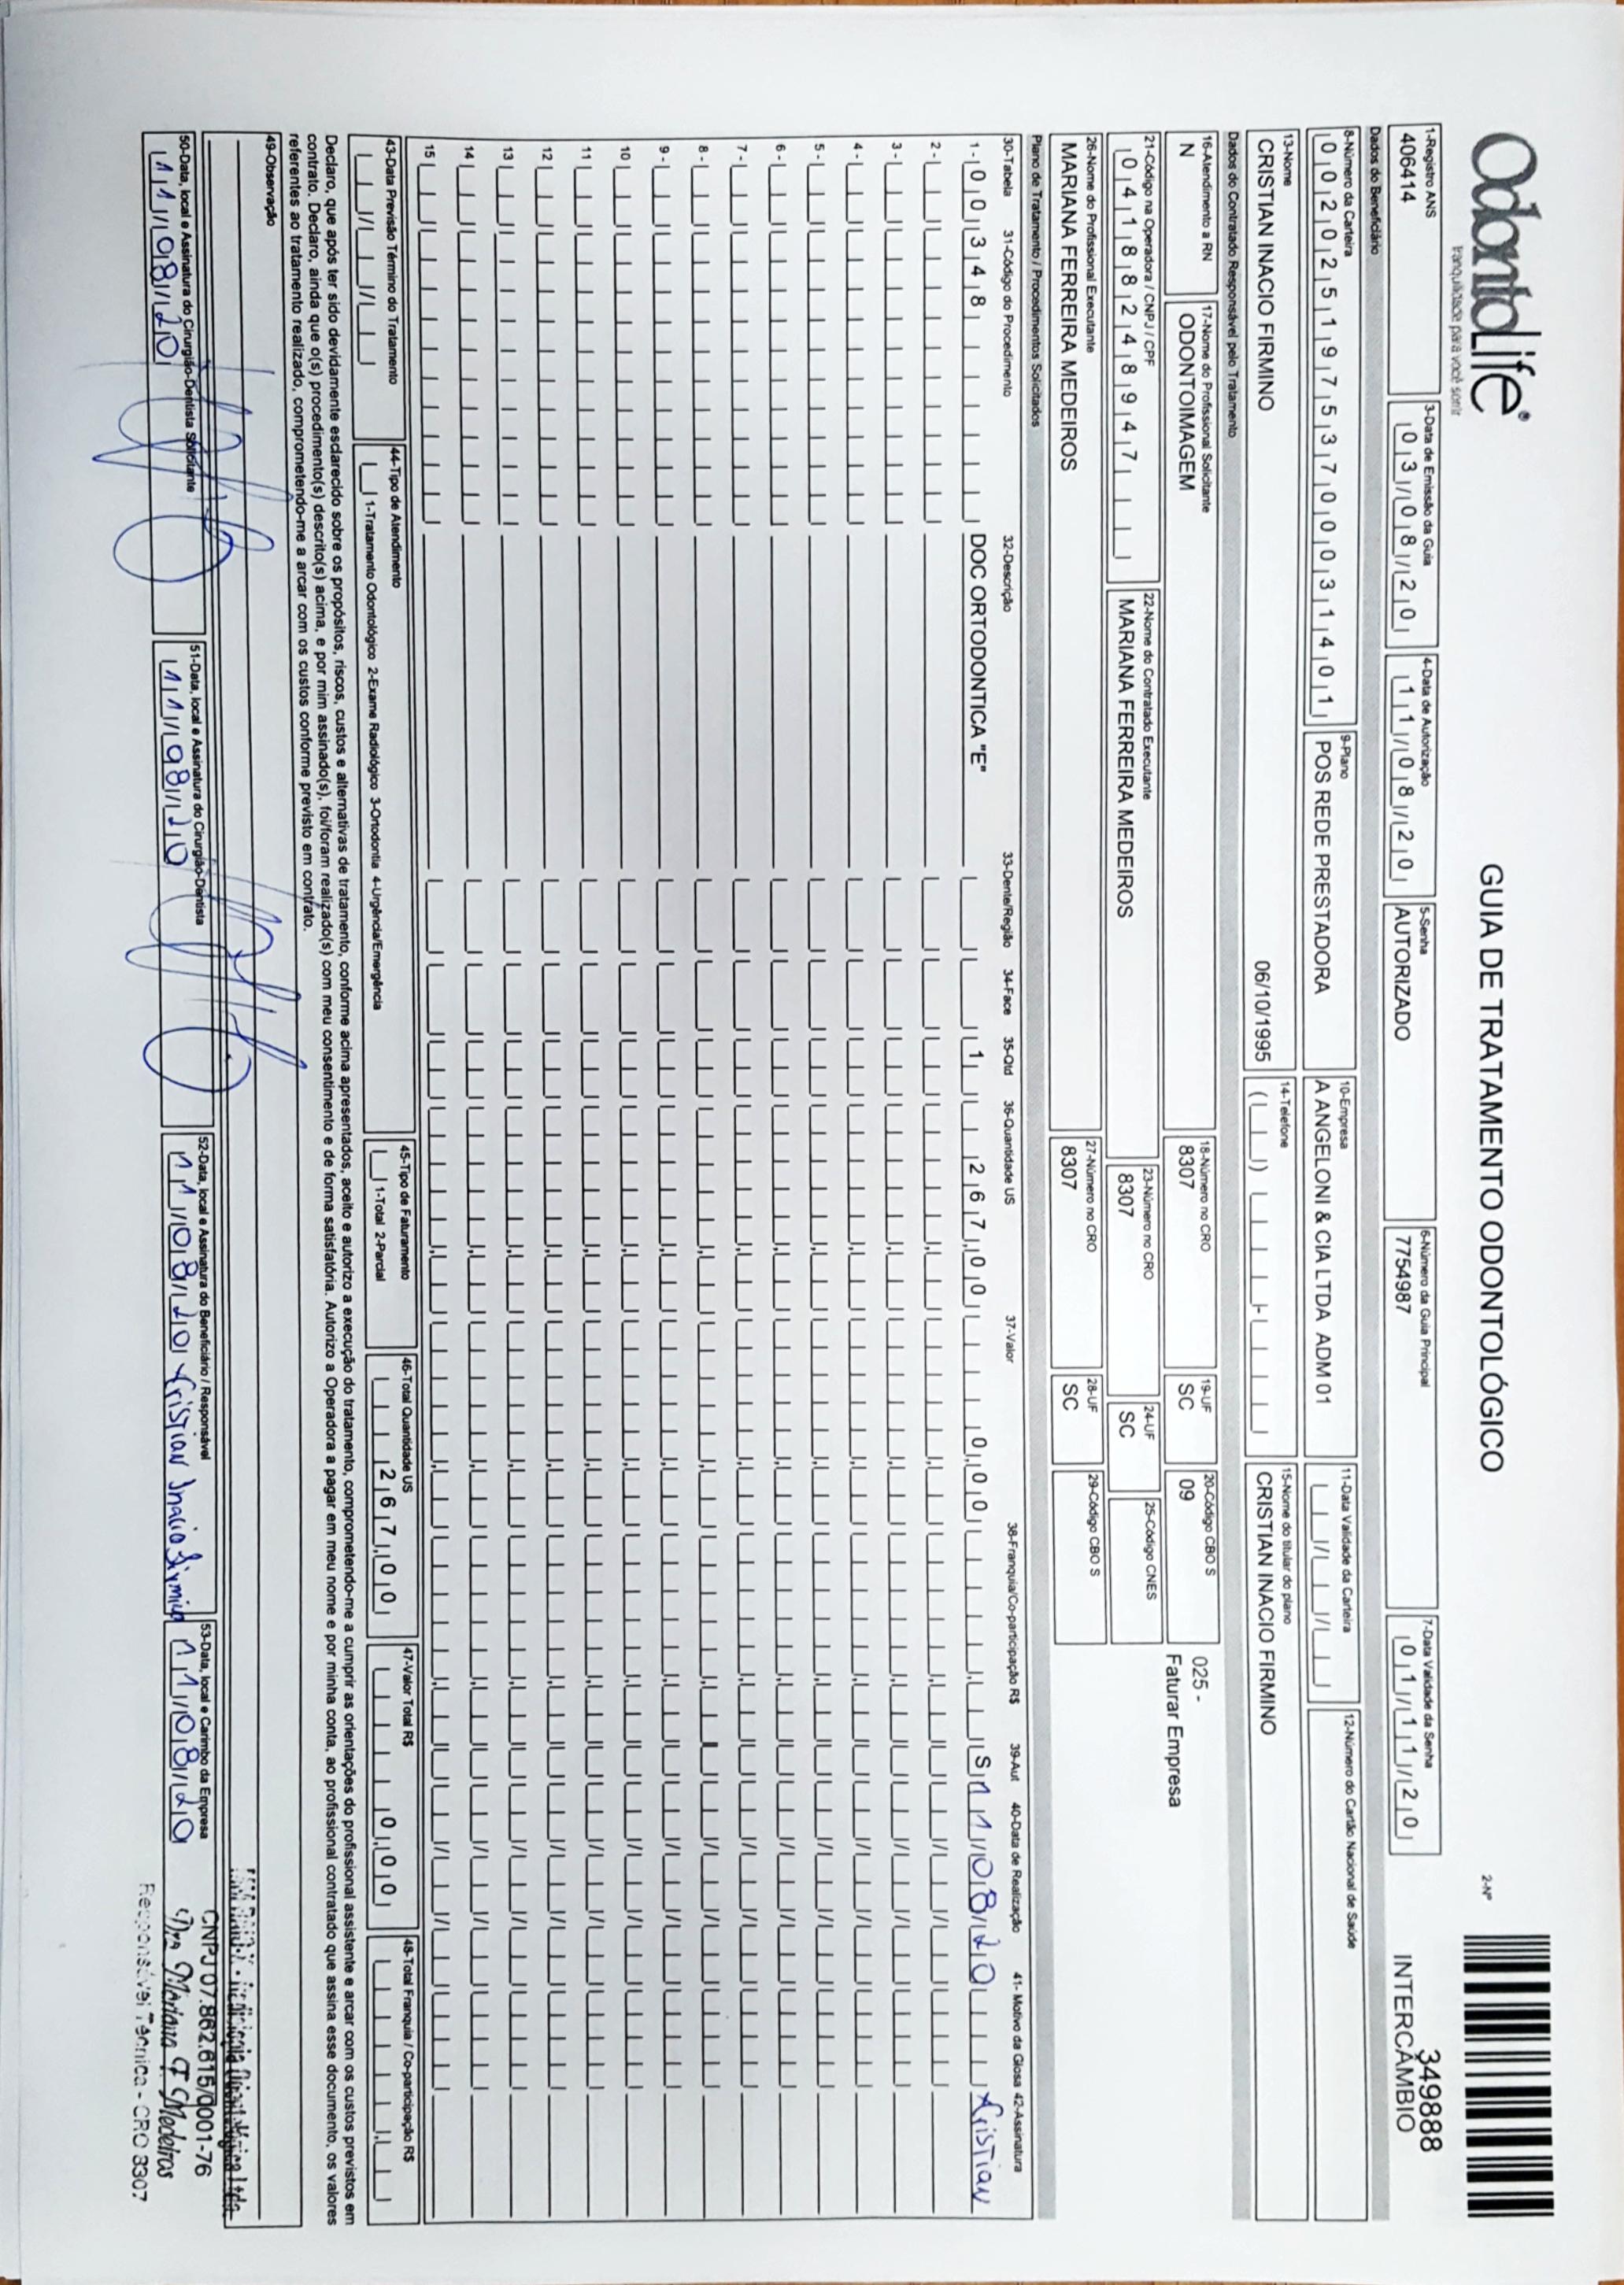 OdontoLife®
tranquilidade para você sorrir
GUIA DE TRATAMENTO ODONTOLÓGICO
2-Nº
349888
INTERCÂMBIO
1-Registro ANS
406414
3-Data de Emissão da Guia
03/08/20
4-Data de Autorização
11/08/20
5-Senha
AUTORIZADO
6-Número da Guia Principal
7754987
7-Data Validade da Senha
01/11/20
Dados do Beneficiário
8-Número da Carteira
00202519753700031401
9-Plano
POS REDE PRESTADORA
10-Empresa
A ANGELONI & CIA LTDA ADM 01
11-Data Validade da Carteira
12-Número do Cartão Nacional de Saúde
13-Nome
CRISTIAN INACIO FIRMINO 06/10/1995
14-Telefone
15-Nome do titular do plano
CRISTIAN INACIO FIRMINO
Dados do Contratado Responsável pelo Tratamento
16-Atendimento a RN
N
17-Nome do Profissional Solicitante
ODONTOIMAGEM
18-Número no CRO
8307
19-UF
SC
20-Código CBO S
09
025 -
Faturar Empresa
21-Código na Operadora / CNPJ / CPF
04188248947
22-Nome do Contratado Executante
MARIANA FERREIRA MEDEIROS
23-Número no CRO
8307
24-UF
SC
25-Código CNES
26-Nome do Profissional Executante
MARIANA FERREIRA MEDEIROS
27-Número no CRO
8307
28-UF
SC
29-Código CBO S
Plano de Tratamento / Procedimentos Solicitados
30-Tabela 31-Código do Procedimento 32-Descrição 33-Dente/Região 34-Face 35-Qtd 36-Quantidade US 37-Valor 38-Franquia/Co-participação R$ 39-Aut 40-Data de Realização 41- Motivo da Glosa 42-Assinatura
1- 00348 DOC ORTODONTICA "E" 1 267,00 0,00 S 11/08/20 Cristian
2-
3-
4-
5-
6-
7-
8-
9-
10
11
12
13
14
15
43-Data Previsão Término do Tratamento
44-Tipo de Atendimento
1-Tratamento Odontológico 2-Exame Radiológico 3-Ortodontia 4-Urgência/Emergência
45-Tipo de Faturamento
1-Total 2-Parcial
46-Total Quantidade US
267,00
47-Valor Total R$
0,00
48-Total Franquia / Co-participação R$
Declaro, que após ter sido devidamente esclarecido sobre os propósitos, riscos, custos e alternativas de tratamento, conforme acima apresentados, aceito e autorizo a execução do tratamento, comprometendo-me a cumprir as orientações do profissional assistente e arcar com os custos previstos em
contrato. Declaro, ainda que o(s) procedimento(s) descrito(s) acima, e por mim assinado(s), foi/foram realizado(s) com meu consentimento e de forma satisfatória. Autorizo a Operadora a pagar em meu nome e por minha conta, ao profissional contratado que assina esse documento, os valores
referentes ao tratamento realizado, comprometendo-me a arcar com os custos conforme previsto em contrato.
49-Observação
50-Data, local e Assinatura do Cirurgião-Dentista Solicitante
11/08/20
51-Data, local e Assinatura do Cirurgião-Dentista
11/08/20
52-Data, local e Assinatura do Beneficiário / Responsável
11/08/20 Cristian Inacio Firmino
53-Data, local e Carimbo da Empresa
11/08/20
CNPJ 07.862.615/0001-76
Dra Mariana F. Medeiros
Responsável Técnica - CRO 8307